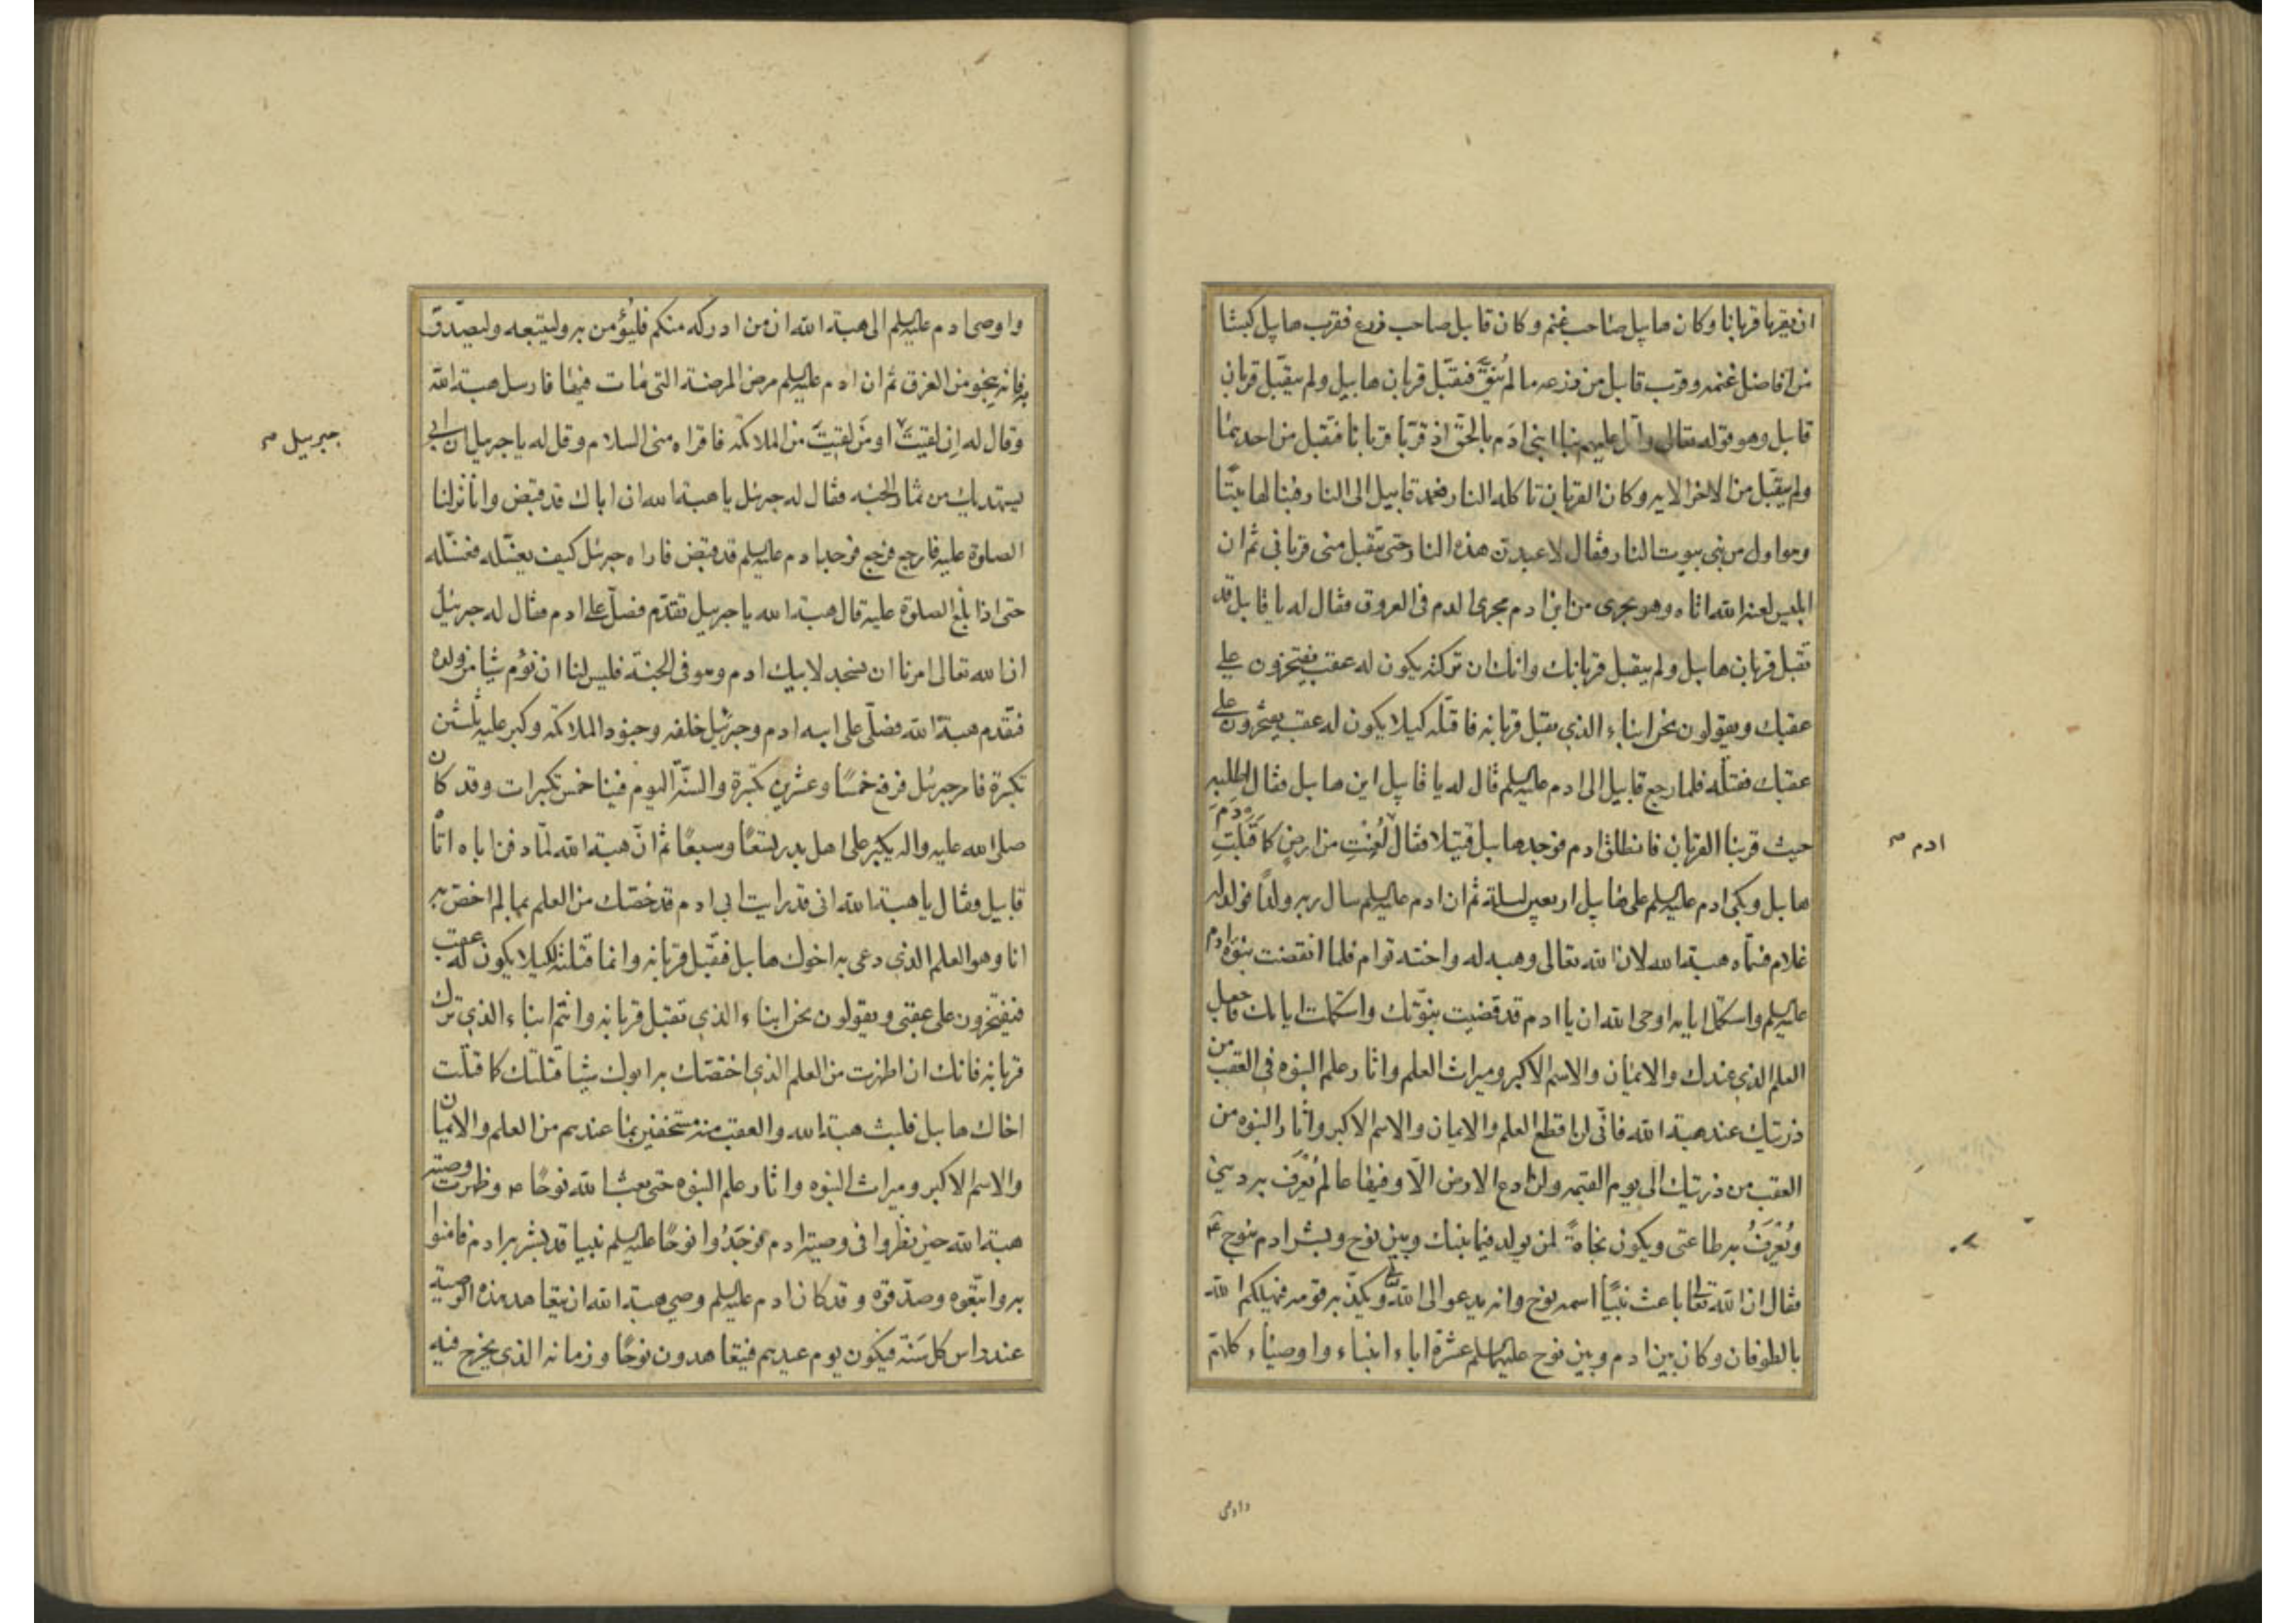 ان يقربا قربانا وكان هابيل صاحب غنم وكان قابيل صاحب زرع فقرب هابيل كبشا
من افاضل غنمه وقرب قابيل من زرعه ما لم يُنَقَّ فتقبّل قربان هابيل ولم يتقبّل قربان
قابيل وهو قوله تعالى واتل عليهم نبا ابنى ادَم بالحقّ اذ قرّبا قربانا فتقبل من احدهما
ولم يتقبّل من الاخر الايه وكان القربان تاكله النار فعمد قابيل الى النار فبنا لها بيتًا
وهو اول من بنى بيوت النار فقال لاعبدن هذه النار حتى تتقبل منى قربانى ثم ان
ابليس لعنه الله اتاه وهو يجرى من ابن ادم مجرى الدم فى العروق فقال له يا قابيل قد
تقبل قربان هابيل ولم يتقبل قربانك وانك ان تركته يكون له عقب يفتخرون على
عقبك ويقولون نحن ابناء الذى تقبل قربانه فاقتله كيلا يكون له عقب يفتخرون على
عقبك فقتله فلما رجع قابيل الى ادم عليه السلم قال له يا قابيل اين هابيل فقال اطلبه
حيث قربنا القربان فانطلق ادم فوجد هابيل قتيلا فقال لُعِنْتِ من ارضٍ كما قَبِلْتِ دَمَ
هابيل وبكى ادم عليه السلم على هابيل اربعين ليلة ثم ان ادم عليه السلم سال ربه ولدًا فولد له
غلام فسمّاه هبة الله لان الله تعالى وهبه له واخته توام فلما انقضت نبوّة ادم
عليه السلم واستكمل ايامه اوحى الله ان يا ادم قد قضيت نبوّتك واستكملت ايامك فاجعل
العلم الذى عندك والايمان والاسم الاكبر وميراث العلم واثار علم النبوه فى العقب من
ذريتك عند هبة الله فانّى لن اقطع العلم والايمان والاسم الاكبر واثار النبوه من
العقب من ذريتك الى يوم القيمه ولن ادع الارض الّا وفيها عالم يُعْرَف به دينى
ويُعْرَفُ به طاعتى ويكون نجاةً لمن يولد فيما بينك وبين نوح وبشر ادم بنوح عم
فقال ان الله تعالى باعث نبيًّا اسمه نوح وانه يدعو الى الله ويكذّبه قومه فيهلكهم الله
بالطوفان وكان بين ادم وبين نوح عليهما السلم عشرة اباء انبياء واوصياء كلهم
ادم صح
واوصى
واوصى ادم عليه السلم الى هبة الله ان من ادركه منكم فليؤمن به وليتبعه وليصدّق
به فانه ينجو من الغرق ثم ان ادم عليه السلم مرض المرضة التى مات فيها فارسل هبة الله
وقال له اِن لقيتَ او مَن لقيتَ من الملائكه فاقراه منى السلام وقل له يا جبريل ان ابى
يستهديك من ثمار الجنه فقال له جبرئل يا هبة الله ان اباك قد قبض وانا نزلنا
الصلوة عليه فارجع فرجع فوجد ادم عليه السلم قد قبض فاراه جبرئل كيف يغسّله فغسّله
حتى اذا بلغ الصلوة عليه قال هبة الله يا جبريل تقدّم فصلّ على ادم فقال له جبرئيل
ان الله تعالى امرنا ان نسجد لابيك ادم وهو فى الجنة فليس لنا ان نؤم شيا من ولده
فتقدم هبة الله فصلّى على ابيه ادم وجبرئيل خلفه وجنود الملائكه وكبر عليه ثلثين
تكبيرة فامر جبرئل فرفع خمسًا وعشرين تكبيرة والسنّة اليوم فينا خمس تكبيرات وقد كان
صلى الله عليه واله يكبر على اهل بدر تسعًا وسبعًا ثم انّ هبة الله لمّا دفن اباه اتاه
قابيل وقال يا هبة الله انى قد رايت ابى ادم قد خصّك من العلم بما لم اخصّ به
انا وهو العلم الذى دعى به اخوك هابيل فتقبّل قربانه وانما قتلته لكيلا يكون له عقب
فيفتخرون على عقبى ويقولون نحن ابناء الذى تقبل قربانه وانتم ابناء الذى ترك
قربانه فانك ان اظهرت من العلم الذى اختصّك به ابوك شيا قتلتك كما قتلت
اخاك هابيل فلبث هبة الله والعقب منه مستخفين بما عندهم من العلم والايمان
والاسم الاكبر وميراث النبوه واثار علم النبوه حتى بعث الله نوحًا ص وظهرت وصية
هبة الله حين نظروا فى وصية ادم فوجَدُوا نوحًا عليه السلم نبيا قد بشر به ادم فامنوا
به واتّبعوه وصدّقوه وقد كان ادم عليه السلم وصى هبة الله ان يتعاهد هذه الوصية
عند راس كل سَنَة فيكون يوم عيدهم فيتعاهدون نوحًا وزمانه الذى يخرج فيه
جبرييل صح